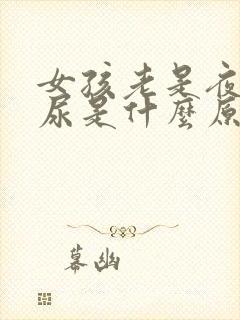 女孩老是夜
尿是什麼原
幕幽